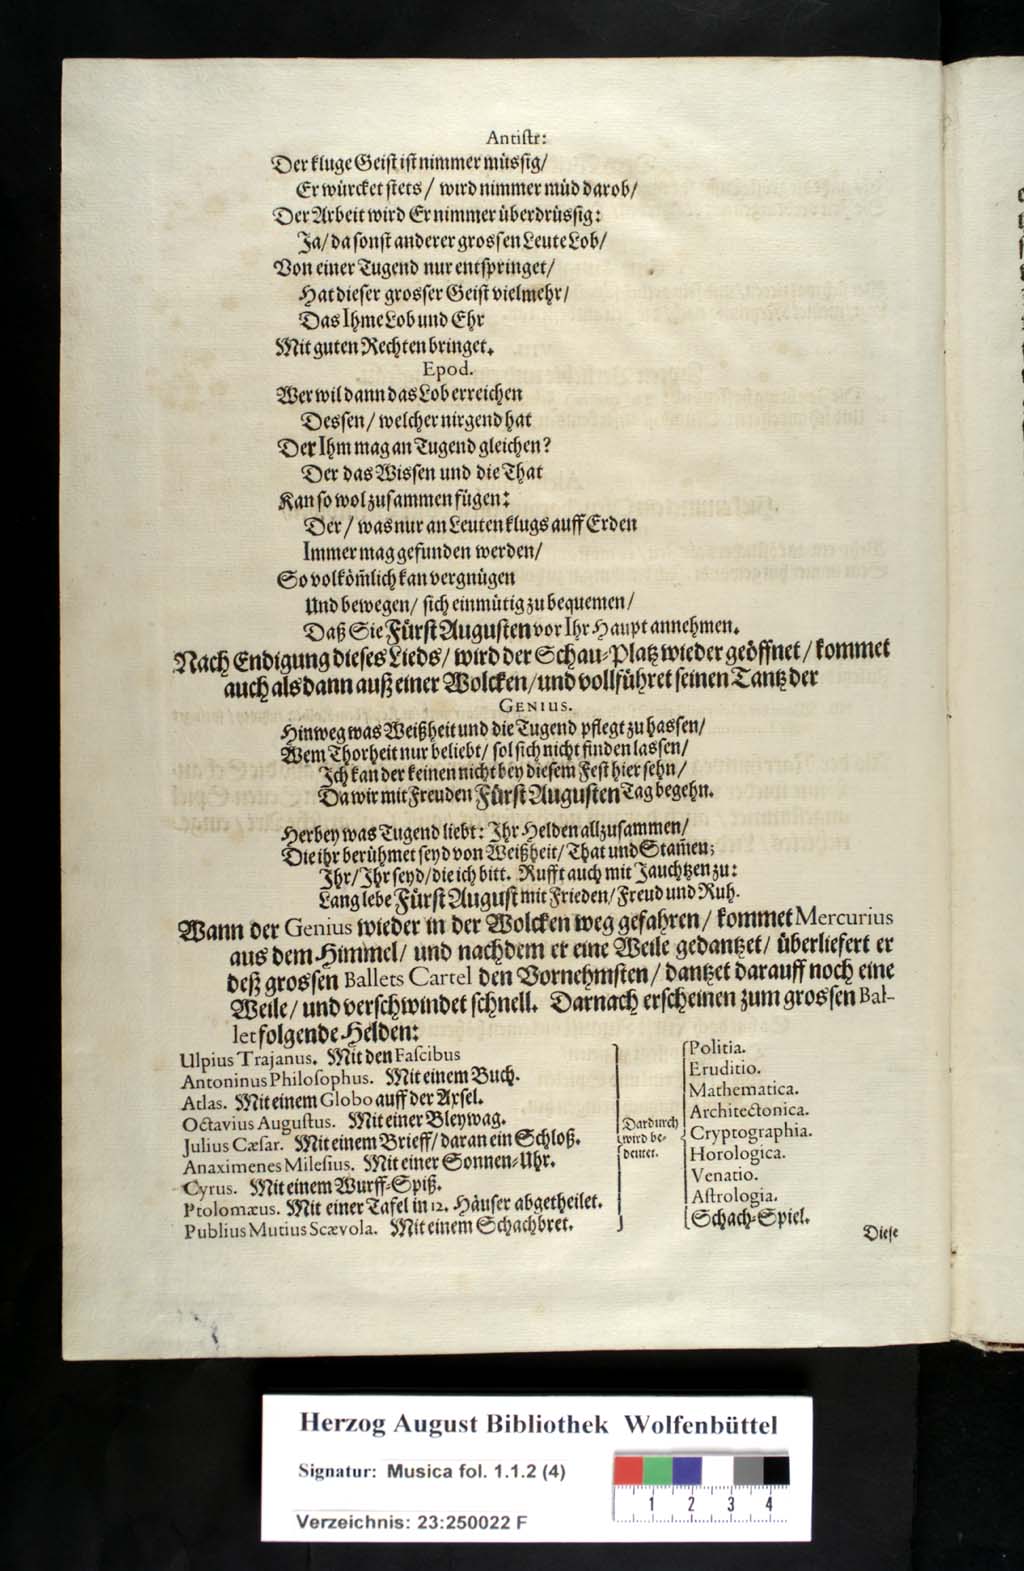 Antistr:
Der kluge Geist ist nimmer müssig/
Er würcket stets/ wird nimmer müd darob/
Der Arbeit wird Er nimmer überdrüssig:
Ja/ da sonst anderer grossen Leute Lob/
Von einer Tugend nur entspringet/
Hat dieser grosser Geist vielmehr/
Das Ihme Lob und Ehr
Mit guten Rechten bringet.
Epod.
Wer wil dann das Lob erreichen
Dessen/ welcher nirgend hat
Der Ihm mag an Tugend gleichen?
Der das Wissen und die That
Kan so wol zusammen fügen:
Der/ was nur an Leuten klugs auff Erden
Immer mag gefunden werden/
So volköm̃lich kan vergnügen
Und bewegen/ sich einmütig zu bequemen/
Daß Sie Fürst Augusten vor Ihr Haupt annehmen.
Nach Endigung dieses Lieds/ wird der Schau-Platz wieder geöffnet/ kommet
auch als dann auß einer Wolcken/ und vollführet seinen Tantz der
GENIUS.
Hinweg was Weißheit und die Tugend pflegt zu hassen/
Wem Thorheit nur beliebt/ sol sich nicht finden lassen/
Ich kan der keinen nicht bey diesem Fest hier sehn/
Da wir mit Freuden Fürst Augusten Tag begehn.
Herbey was Tugend liebt: Ihr Helden allzusammen/
Die ihr berühmet seyd von Weißheit/ That und Stam̃en;
Ihr/ Ihr seyd/ die ich bitt. Rufft auch mit Jauchtzen zu:
Lang lebe Fürst August mit Frieden/ Freud und Ruh.
Wann der Genius wieder in der Wolcken weg gefahren/ kommet Mercurius
aus dem Himmel/ und nachdem er eine Weile gedantzet/ überliefert er
deß grossen Ballets Cartel den Vornehmsten/ dantzet darauff noch eine
Weile/ und verschwindet schnell. Darnach erscheinen zum grossen Bal-
let folgende Helden:
Ulpius Trajanus. Mit den Fascibus
Antoninus Philosophus. Mit einem Buch.
Atlas. Mit einem Globo auff der Axsel.
Octavius Augustus. Mit einer Bleywag.
Julius Cæsar. Mit einem Brieff/ daran ein Schloß.
Anaximenes Milesius. Mit einer Sonnen-Uhr.
Cyrus. Mit einem Wurff-Spiß.
Ptolomæus. Mit einer Tafel in 12. Häuser abgetheilet.
Publius Mutius Scævola. Mit einem Schachbret.
Dardurch
wird be-
deutet.
Politia.
Eruditio.
Mathematica.
Architectonica.
Cryptographia.
Horologica.
Venatio.
Astrologia.
Schach-Spiel.
Diese
Herzog August Bibliothek Wolfenbüttel
Signatur: Musica fol. 1.1.2 (4)
1 2 3 4
Verzeichnis: 23:250022 F